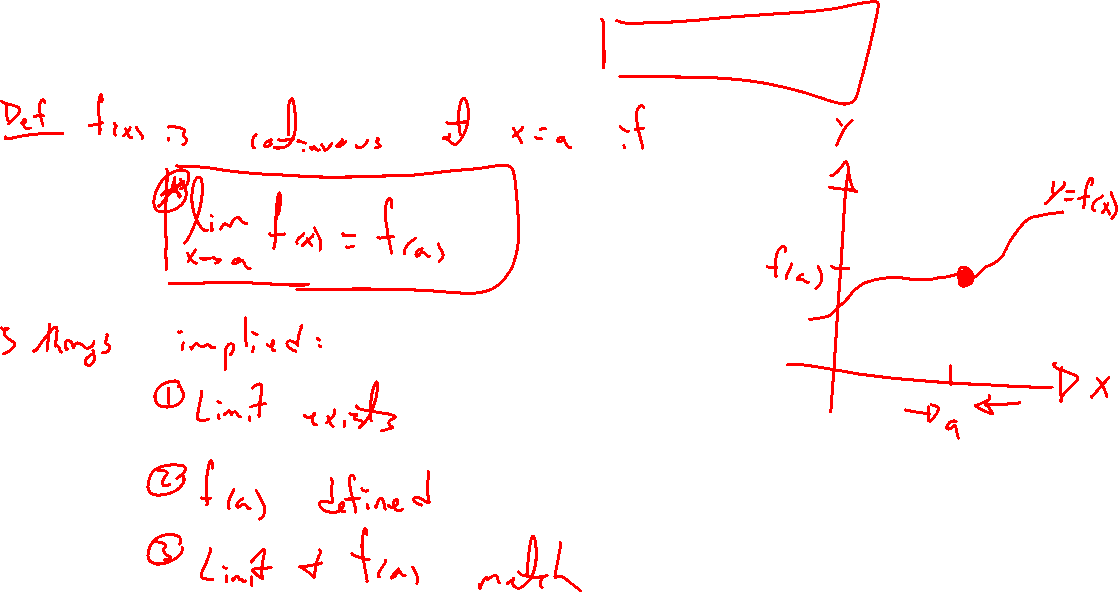 Def f(x) is continuous at x=a if
lim f(x) = f(a)
x→a
3 things implied:
① Limit exists
② f(a) defined
③ Limit & f(a) match
Y
y=f(x)
f(a)
X
a